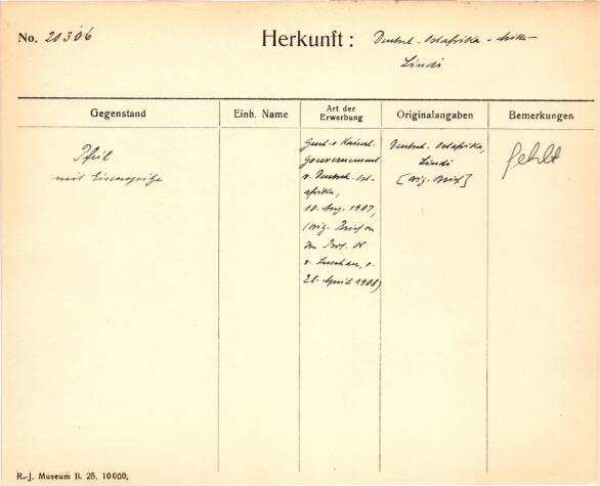 No. 20306
Herkunft: Deutsch-Ostafrika
Lindi
Gegenstand
Einh. Name
Art der Erwerbung
Originalangaben
Bemerkungen
Pfeil
mit Eisenspitze
Gesch. v. Kaiserl.
Gouvernement
v. Deutsch-Ost-
afrika,
10. Aug. 1907,
(orig. Brief an
den Prof. Dr
v. Luschan, v.
28. April 1908)
Deutsch-Ostafrika,
Lindi
[orig. Brief]
fehlt
R.-J. Museum II. 25. 10000.